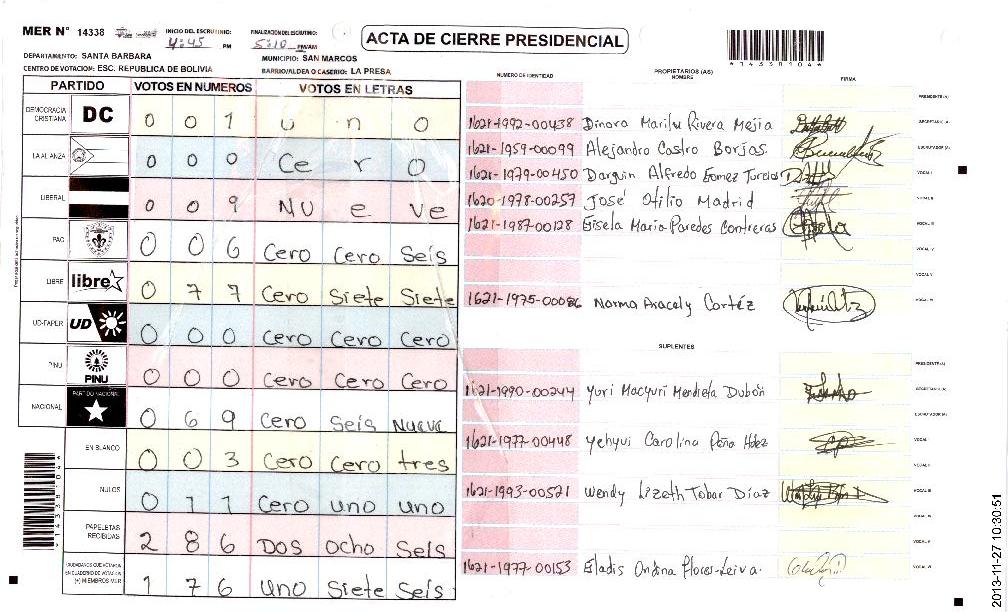 MER N° 14338
INICIO DEL ESCRUTINIO: 4:45 PM
FINALIZACION DEL ESCRUTINIO: 5:10 PM/AM
ACTA DE CIERRE PRESIDENCIAL
*14338104*
DEPARTAMENTO: SANTA BARBARA
MUNICIPIO: SAN MARCOS
CENTRO DE VOTACION: ESC. REPUBLICA DE BOLIVIA
BARRIO/ALDEA O CASERIO: LA PRESA
PARTIDO VOTOS EN NUMEROS VOTOS EN LETRAS
DEMOCRACIA CRISTIANA DC 0 0 1 u n o
LA ALIANZA 0 0 0 Ce r o
LIBERAL 0 0 9 NU e ve
PAC 0 0 6 Cero Cero Seis
LIBRE libre 0 7 7 Cero Siete Siete
UD-FAPER UD 0 0 0 Cero Cero Cero
PINU PINU 0 0 0 Cero Cero Cero
NACIONAL PARTIDO NACIONAL 0 6 9 Cero Seis Nueve
EN BLANCO 0 0 3 Cero Cero tres
NULOS 0 1 1 Cero uno uno
PAPELETAS RECIBIDAS 2 8 6 Dos ocho Seis
CIUDADANOS QUE VOTARON EN CUADERNO DE VOTACION (+) MIEMBROS MER 1 7 6 uno Siete Seis
NUMERO DE IDENTIDAD PROPIETARIOS (AS) NOMBRE FIRMA
PRESIDENTE (A)
1621-1992-00438 Dinora Marilu Rivera Mejia SECRETARIO (A)
1621-1959-00099 Alejandro Castro Borjas ESCRUTADOR (A)
1621-1979-00450 Darguin Alfredo Gomez Turcios VOCAL I
1620-1978-00257 José Otilio Madrid VOCAL II
1621-1987-00128 Gisela Maria Paredes Contreras VOCAL III
VOCAL IV
VOCAL V
1621-1975-00086 Norma Aracely Cortéz VOCAL VI
SUPLENTES
PRESIDENTE (A)
1621-1990-00244 Yuri Macyuri Mendieta Dubón SECRETARIO (A)
ESCRUTADOR (A)
1621-1977-00448 Yehyui Carolina Peña Hdez VOCAL I
VOCAL II
1621-1993-00521 Wendy Lizeth Tobar Díaz VOCAL III
VOCAL IV
VOCAL V
1621-1977-00153 Eladis Ondina Flores Leiva VOCAL VI
2013-11-27 10:30:51